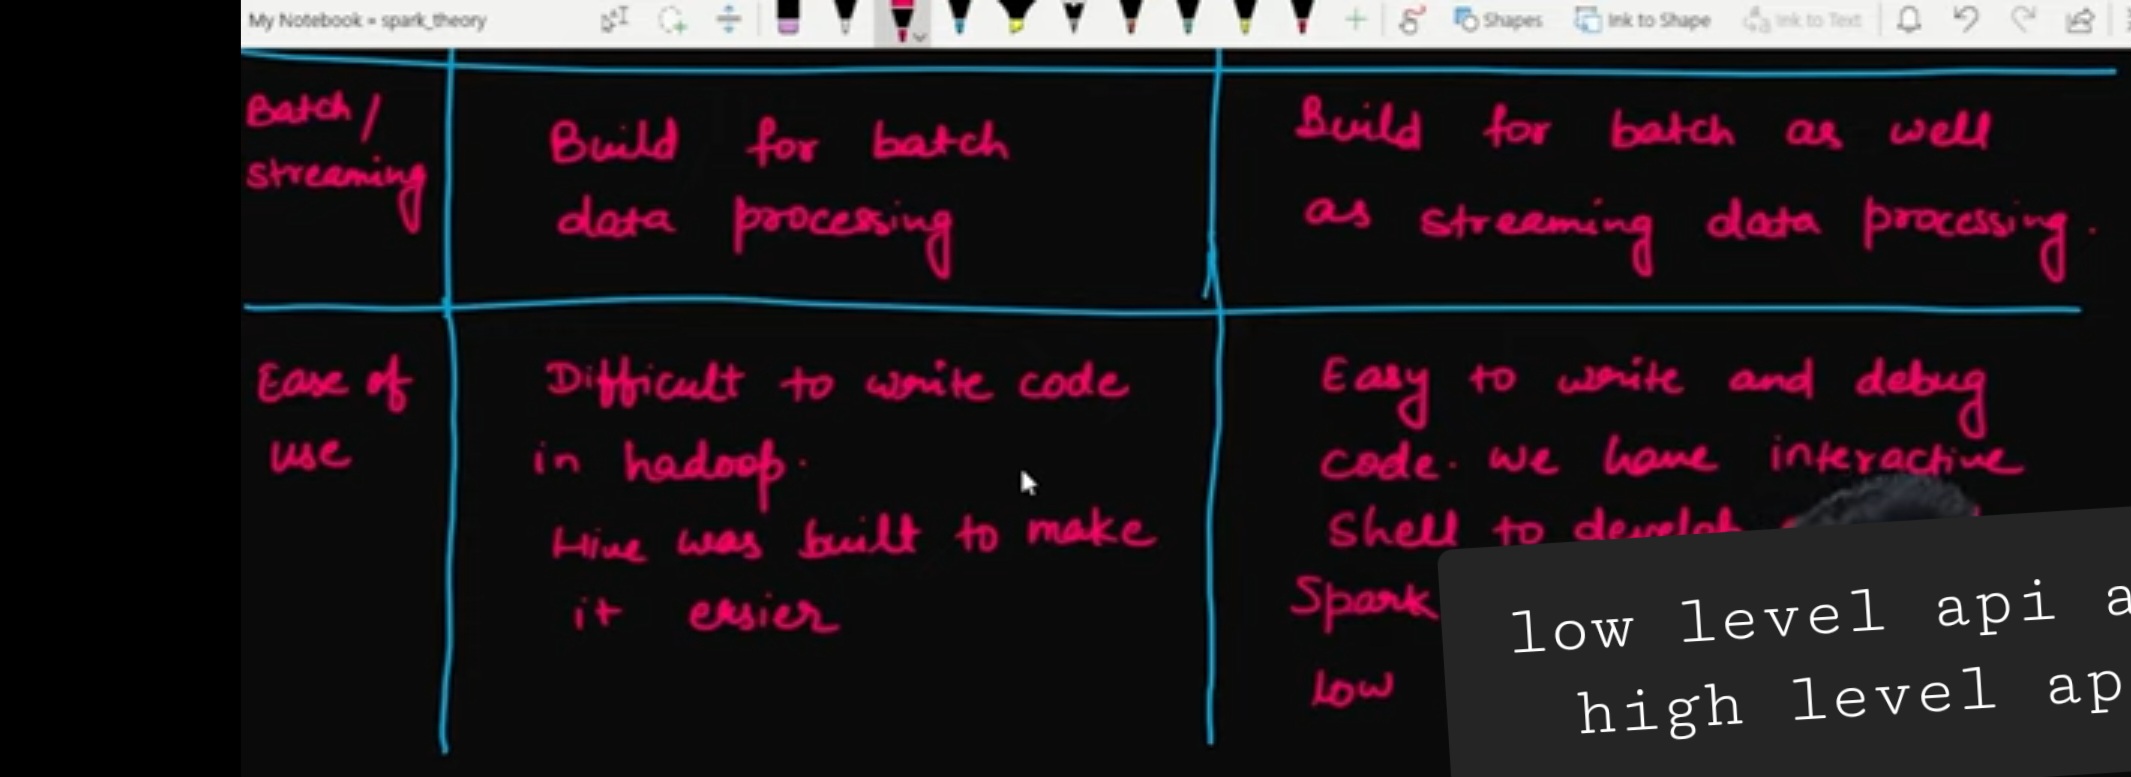 My Notebook » spark_theory
Shapes
Ink to Shape
Ink to Text
Batch /
streaming
Build for batch
data processing
Build for batch as well
as streaming data processing.
Ease of
use
Difficult to write code
in hadoop.
Hive was built to make
it easier
Easy to write and debug
code. we have interactive
Shell to develop
Spark
low
low level api a
high level ap